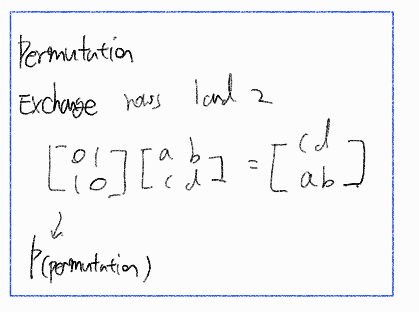 Permutation
Exchange rows 1 and 2
[0 1
1 0] [a b
c d] = [c d
a b]
P(permutation)